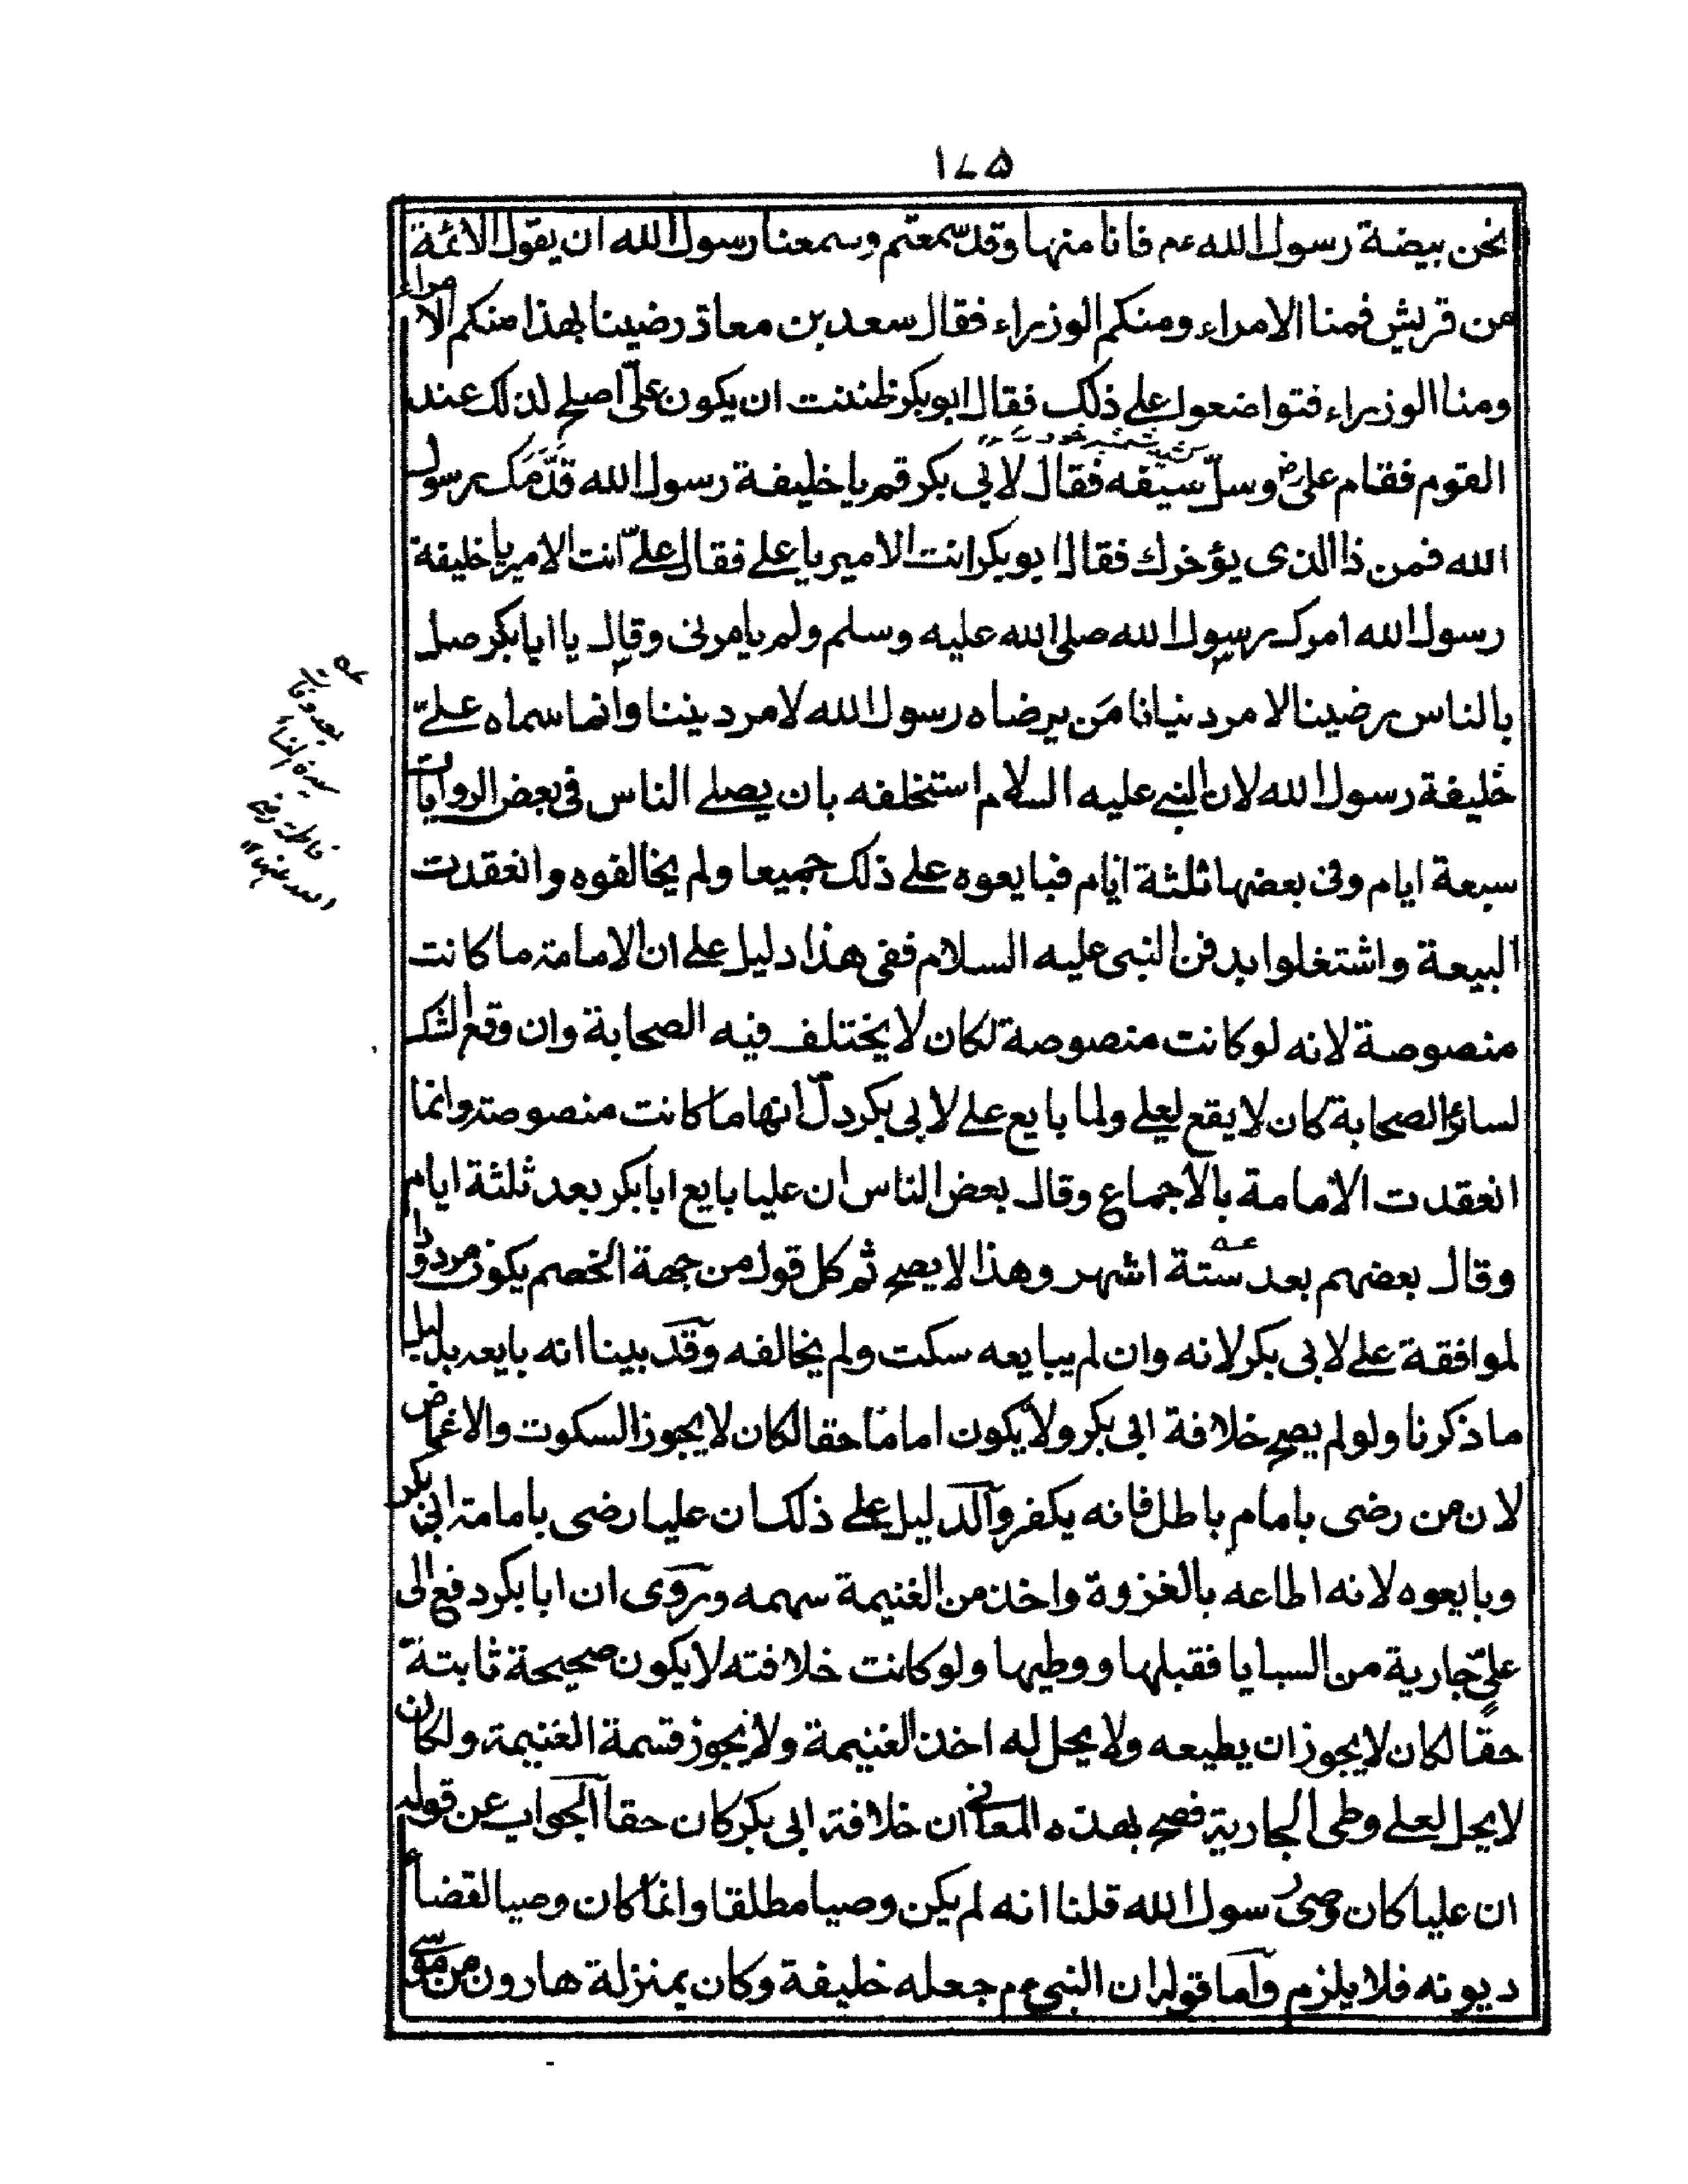 ١٧٥
نحن بيضة رسول الله عم فانا منها وقد سمعتم وسمعنا رسول الله ان يقول الائمة
من قريش فمنا الامراء ومنكم الوزراء فقال سعد بن معاذ رضينا بهذا منكم الامراء
ومنا الوزراء فتواضعوا على ذلك فقال ابو بكر ظننت ان يكون علىّ اصلح لذلك عند
القوم فقام على رض وسلّ سيفه فقال لابى بكر قم يا خليفة رسول الله قدّمك رسول
الله فمن ذا الذى يؤخرك فقال ابو بكر انت الامير يا على فقال علىّ انت الامير يا خليفة
رسول الله امرك رسول الله صلى الله عليه وسلم ولم يامرنى وقال يا ابا بكر صل
بالناس رضينا لامر دنيانا مَن يرضاه رسول الله لامر ديننا وانما سماه علىّ
خليفة رسول الله لان النبى عليه السلام استخلفه بان يصلى الناس فى بعض الروايات
سبعة ايام وفى بعضها ثلثة ايام فبايعوه على ذلك جميعا ولم يخالفوه وانعقدت
البيعة واشتغلوا بدفن النبى عليه السلام ففى هذا دليل على ان الامامة ما كانت
منصوصة لانه لو كانت منصوصة لكان لا يختلف فيه الصحابة وان وقع الشك
لسائر الصحابة كان لا يقع لعلى ولما بايع على لابى بكر دلّ انها ما كانت منصوصة وانما
انعقدت الامامة بالاجماع وقال بعض الناس ان عليا بايع ابا بكر بعد ثلثة ايام
وقال بعضهم بعد ستة اشهر وهذا لا يصح ثم كل قول من جهة الخصم يكون مردودا
لموافقة على لابى بكر لانه وان لم يبايعه سكت ولم يخالفه وقد بينا انه بايعه بدليل
ما ذكرنا ولو لم يصح خلافة ابى بكر ولا يكون اماما حقا لكان لا يجوز السكوت والاغماض
لان من رضى بامام باطل فانه يكفر والدليل على ذلك ان عليا رضى بامامة ابى بكر
وبايعوه لانه اطاعه بالغزوة واخذ من الغنيمة سهمه وروى ان ابا بكر دفع الى
علىّ جارية من السبايا فقبلها ووطيها ولو كانت خلافته لا يكون صحيحة ثابتة
حقا لكان لا يجوز ان يطيعه ولا يحل له اخذ الغنيمة ولا يجوز قسمة الغنيمة ولكان
لا يحل لعلى وطى الجارية فصح بهذه المعانى ان خلافة ابى بكر كان حقا الجواب عن قوله
ان عليا كان وصى رسول الله قلنا انه لم يكن وصيا مطلقا وانما كان وصيا لقضاء
ديونه فلا يلزم واما قوله ان النبى عم جعله خليفة وكان بمنزلة هارون من موسى
عه
بعد وفات
سيدة النساء
فاطمة رضى
الله عنها ١٢